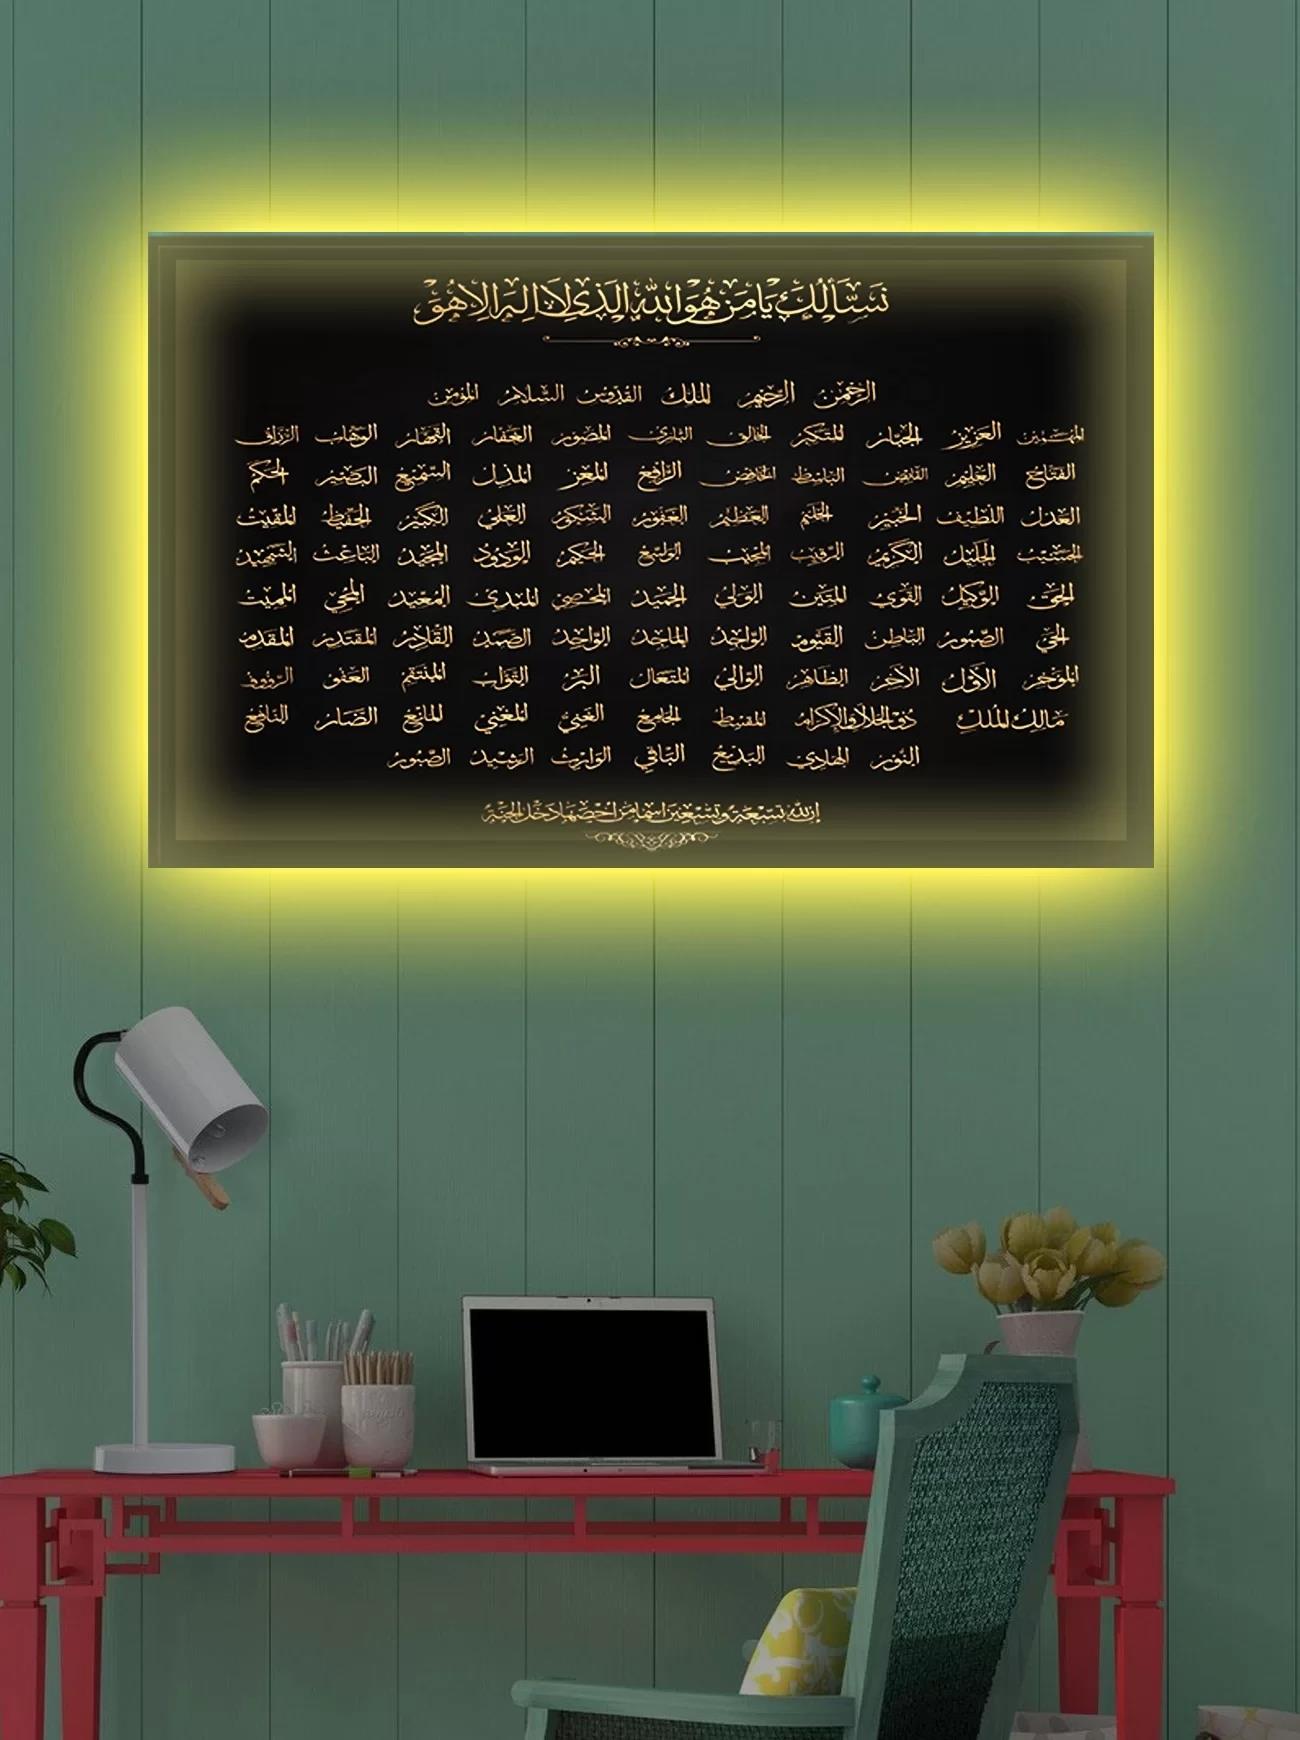 نَسْأَلُكَ يَا مَنْ هُوَ اللهُ الَّذِي لَا إِلٰهَ إِلَّا هُوَ
الرحمن الرحيم الملك القدوس السلام المؤمن
المهيمن العزيز الجبار المتكبر الخالق البارئ المصور الغفار القهار الوهاب الرزاق
الفتاح العليم القابض الباسط الخافض الرافع المعز المذل السميع البصير الحكم
العدل اللطيف الخبير الحليم العظيم الغفور الشكور العلي الكبير الحفيظ المقيت
الحسيب الجليل الكريم الرقيب المجيب الواسع الحكيم الودود المجيد الباعث الشهيد
الحق الوكيل القوي المتين الولي الحميد المحصي المبدئ المعيد المحيي المميت
الحي الصبور الباطن القيوم الواجد الماجد الواحد الصمد القادر المقتدر المقدم
المؤخر الأول الآخر الظاهر الوالي المتعال البر التواب المنتقم العفو الرؤوف
مالك الملك ذو الجلال والإكرام المقسط الجامع الغني المغني المانع الضار النافع
النور الهادي البديع الباقي الوارث الرشيد الصبور
إن لله تسعة وتسعين اسما من أحصاها دخل الجنة